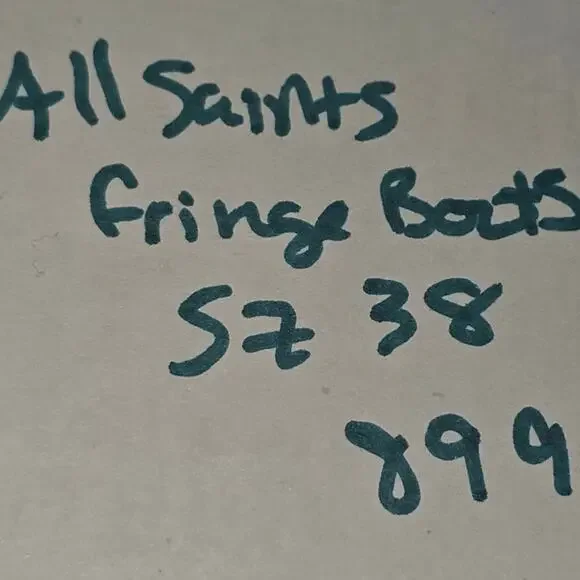 All Saints
fringe Boots
SZ 38
899